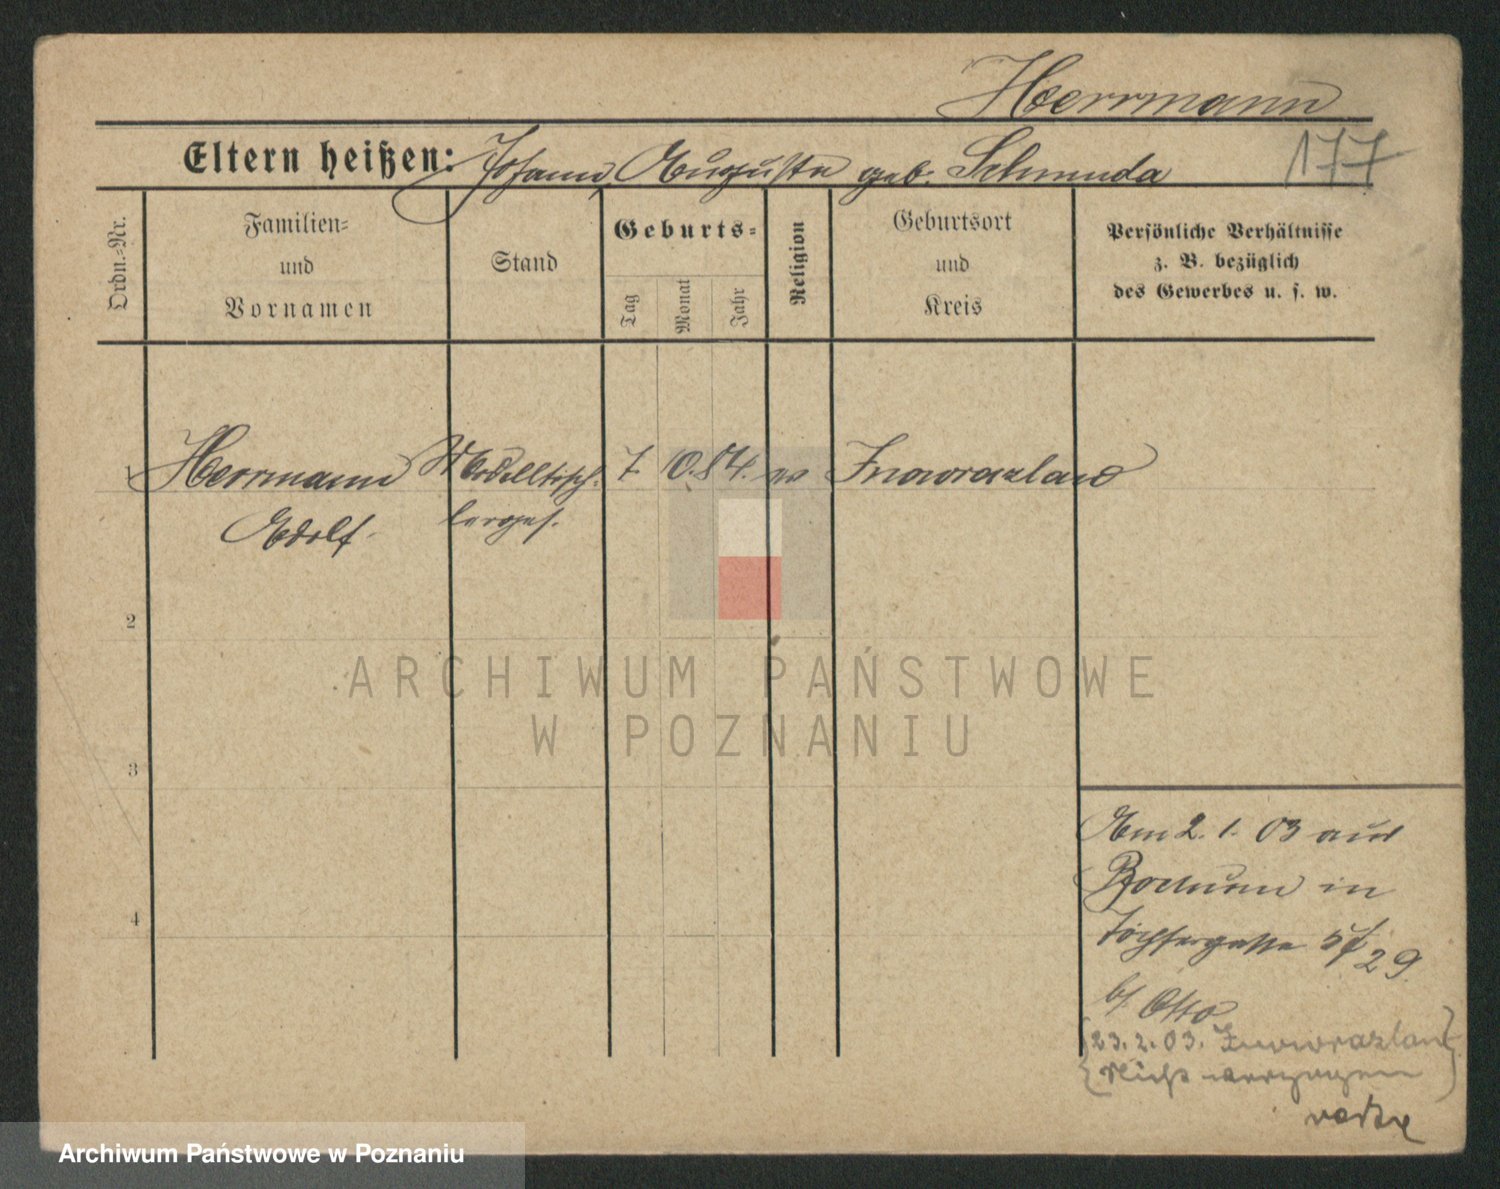 Herrmann
Eltern heißen: Johann, Auguste geb. Schmuda
177
Ordn.=Nr.
Familien=
und
Vornamen
Stand
Geburts=
Tag
Monat
Jahr
Religion
Geburtsort
und
Kreis
Persönliche Verhältnisse
z. B. bezüglich
des Gewerbes u. s. w.
1 Herrmann Modelltisch= 7. 10. 84. ev Inowrazlaw
Adolf. lerges.
2
3
4
ARCHIWUM PAŃSTWOWE
W POZNANIU
Am 2. 1. 03 aus
Bochum in
29
b/ Otto
23. 2. 03. Inowrazlaw
Nicht verzogen
Archiwum Państwowe w Poznaniu